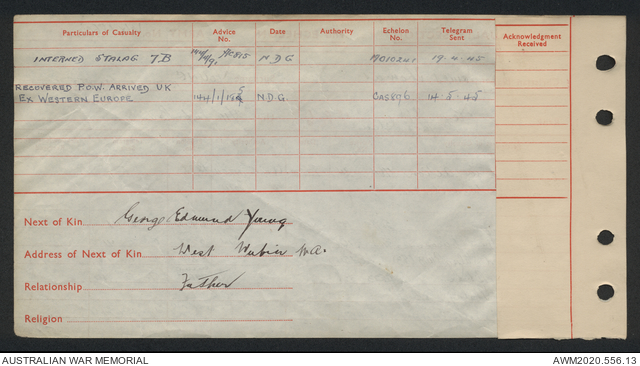 Particulars of Casualty Advice No. Date Authority Echelon No. Telegram Sent Acknowledgment Received
INTERNED STALAG 7B N.D.G 19.4.45
RECOVERED P.O.W. ARRIVED UK
EX WESTERN EUROPE N.D.G. CAS896 14.5.45
Next of Kin George Edmund Young
Address of Next of Kin West W.A.
Relationship Father
Religion
AUSTRALIAN WAR MEMORIAL AWM2020.556.13